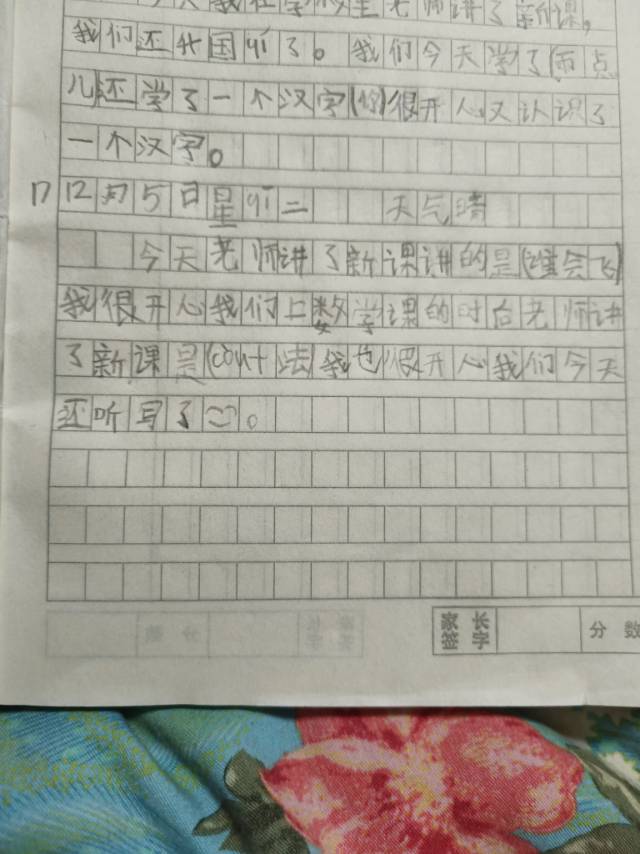 今天我在学校里老师讲了新课,
我们还升国qí了。我们今天学了雨点
儿还学了一个汉字(你)很开心又认识了
一个汉字。
17 12月5日星qī二 天气晴
今天老师讲了新课讲的是(谁会飞)
我很开心我们上数学课的时后老师讲
了新课是(còu十法)我也很开心我们今天
还听写了。
家长签字 分数